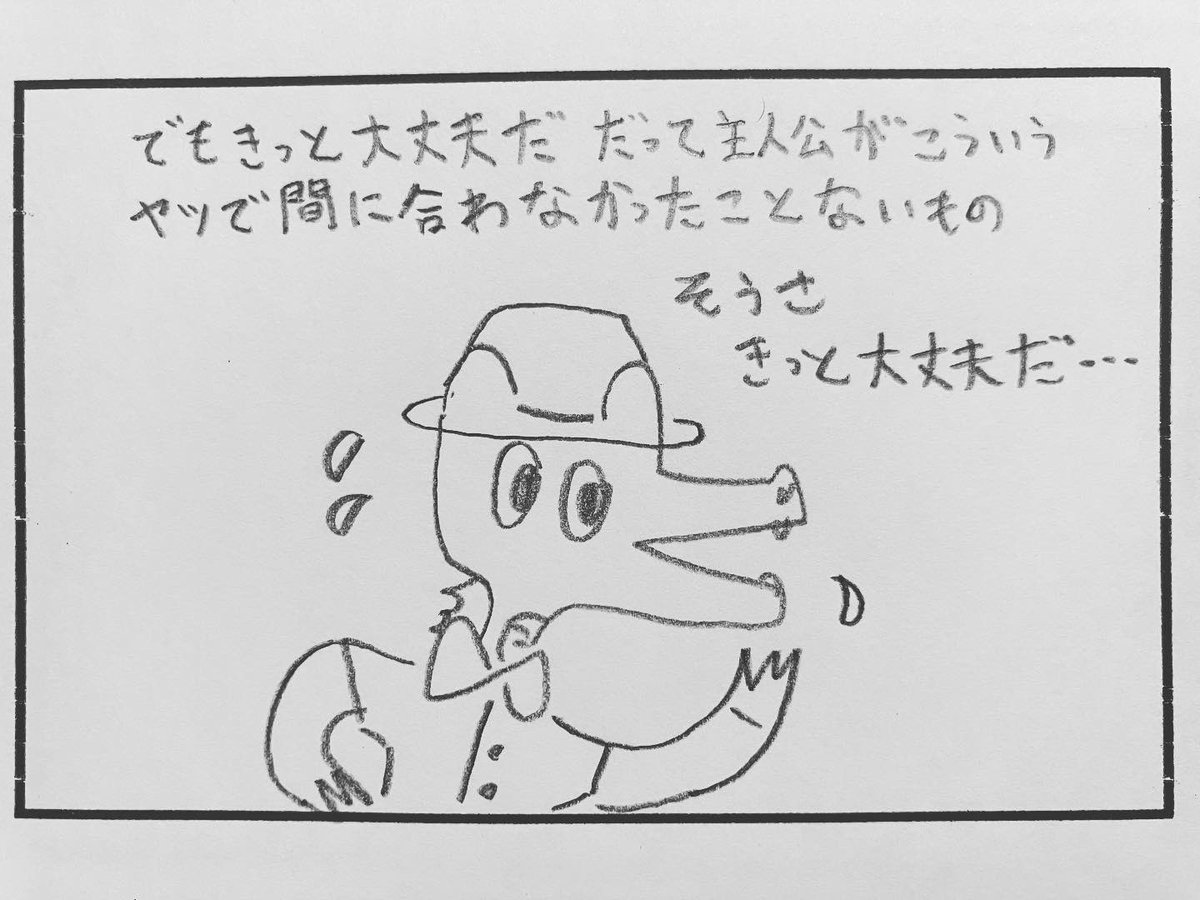 でもきっと大丈夫だ だって主人公がこういう
ヤツで間に合わなかったことないもの
そうさ
きっと大丈夫だ…